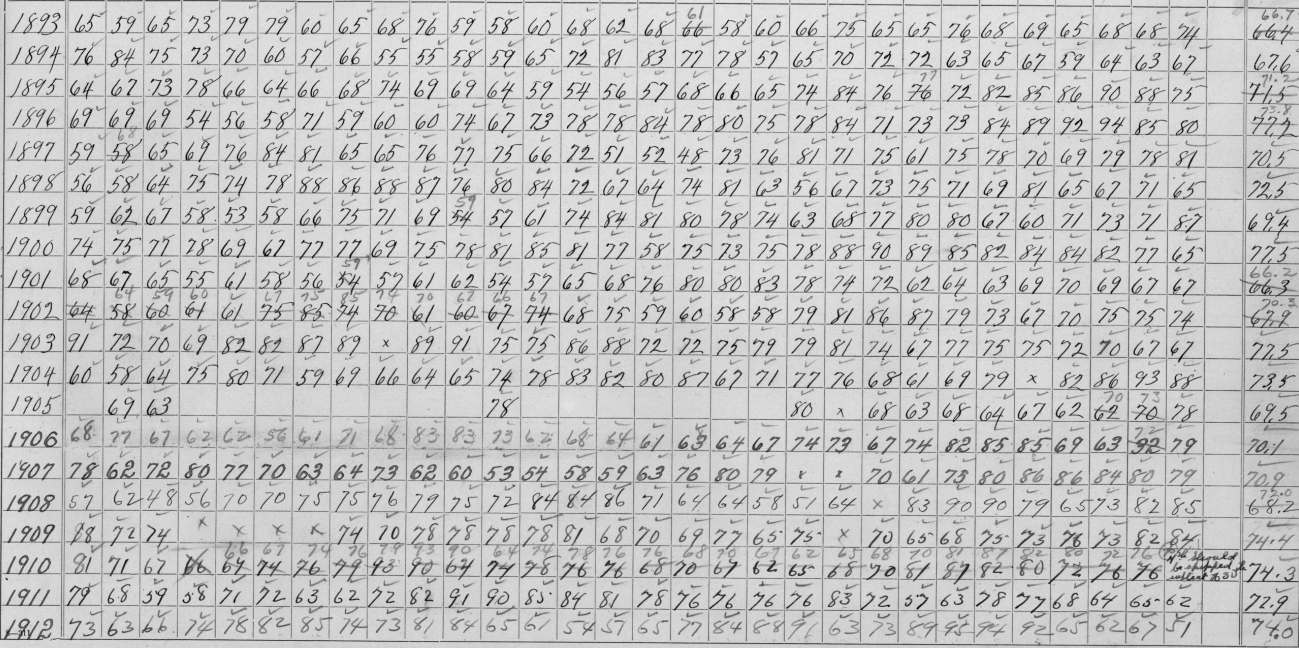 61 66.7
1893 65 59 65 73 79 79 60 65 68 76 59 58 60 68 62 68 66 58 60 66 75 65 65 76 68 69 65 68 68 74 66.4
1894 76 84 75 73 70 60 57 66 55 55 58 59 65 72 81 83 77 78 57 65 70 72 72 63 65 67 59 64 63 67 67.6
77 71.2
1895 64 67 73 78 66 64 66 68 74 69 69 64 59 54 56 57 68 66 65 74 84 76 76 72 82 85 86 90 88 75 71.5
73.8
1896 69 69 69 54 56 58 71 59 60 60 74 67 73 78 78 84 78 80 75 78 84 71 73 73 84 89 92 94 85 80 77.2
68
1897 59 58 65 69 76 84 81 65 65 76 77 75 66 72 51 52 48 73 76 81 71 75 61 75 78 70 69 79 78 81 70.5
1898 56 58 64 75 74 78 88 86 88 87 76 80 84 72 67 64 74 81 63 56 67 73 75 71 69 81 65 67 71 65 72.5
59
1899 59 62 67 58 53 58 66 75 71 69 54 57 61 74 84 81 80 78 74 63 68 77 80 80 67 60 71 73 71 87 69.4
1900 74 75 77 78 69 67 77 77 69 75 78 81 85 81 77 58 75 73 75 78 88 90 89 85 82 84 84 82 77 65 77.5
59 66.2
1901 68 67 65 55 61 58 56 54 57 61 62 54 57 65 68 76 80 80 83 78 74 72 62 64 63 69 70 69 67 67 66.3
64 59 60 67 75 85 74 70 62 66 67 70.3
1902 64 58 60 61 61 75 85 74 70 61 60 67 74 68 75 59 60 58 58 79 81 86 87 79 73 67 70 75 75 74 67.9
1903 91 72 70 69 82 82 87 89 x 89 91 75 75 86 88 72 72 75 79 79 81 74 67 77 75 75 72 70 67 67 77.5
1904 60 58 64 75 80 71 59 69 66 64 65 74 78 83 82 80 87 67 71 77 76 68 61 69 79 x 82 86 93 88 73.5
70 73
1905 69 63 78 80 x 68 63 68 64 67 62 62 70 78 69.5
72
1906 68 77 67 62 62 56 61 71 68 83 83 73 62 68 64 61 63 64 67 74 73 67 74 82 85 85 69 63 92 79 70.1
1907 78 62 72 80 77 70 63 64 73 62 60 53 54 58 59 63 76 80 79 x x 70 61 73 80 86 86 84 80 79 70.9
72.0
1908 57 62 48 56 70 70 75 75 76 79 75 72 84 84 86 71 64 64 58 51 64 x 83 90 90 79 65 73 82 85 68.2
1909 88 72 74 x x x x 74 70 78 78 78 78 81 68 70 69 77 65 75 x 70 65 68 75 73 76 73 82 84 74.4
66 67 74 76 79 93 90 64 74 78 76 76 68 70 67 62 65 68 70 81 87 82 80 72 76 should
1910 81 71 67 66 67 74 76 79 93 90 64 74 78 76 76 68 70 67 62 65 68 70 81 87 82 80 72 76 76 be 74.3
1911 79 68 59 58 71 72 63 62 72 82 91 90 85 84 81 78 76 76 76 76 83 72 57 63 78 77 68 64 65 62 72.9
1912 73 63 66 74 78 82 85 74 73 81 84 65 61 54 57 65 77 84 88 91 63 73 89 95 94 92 65 62 67 51 74.0